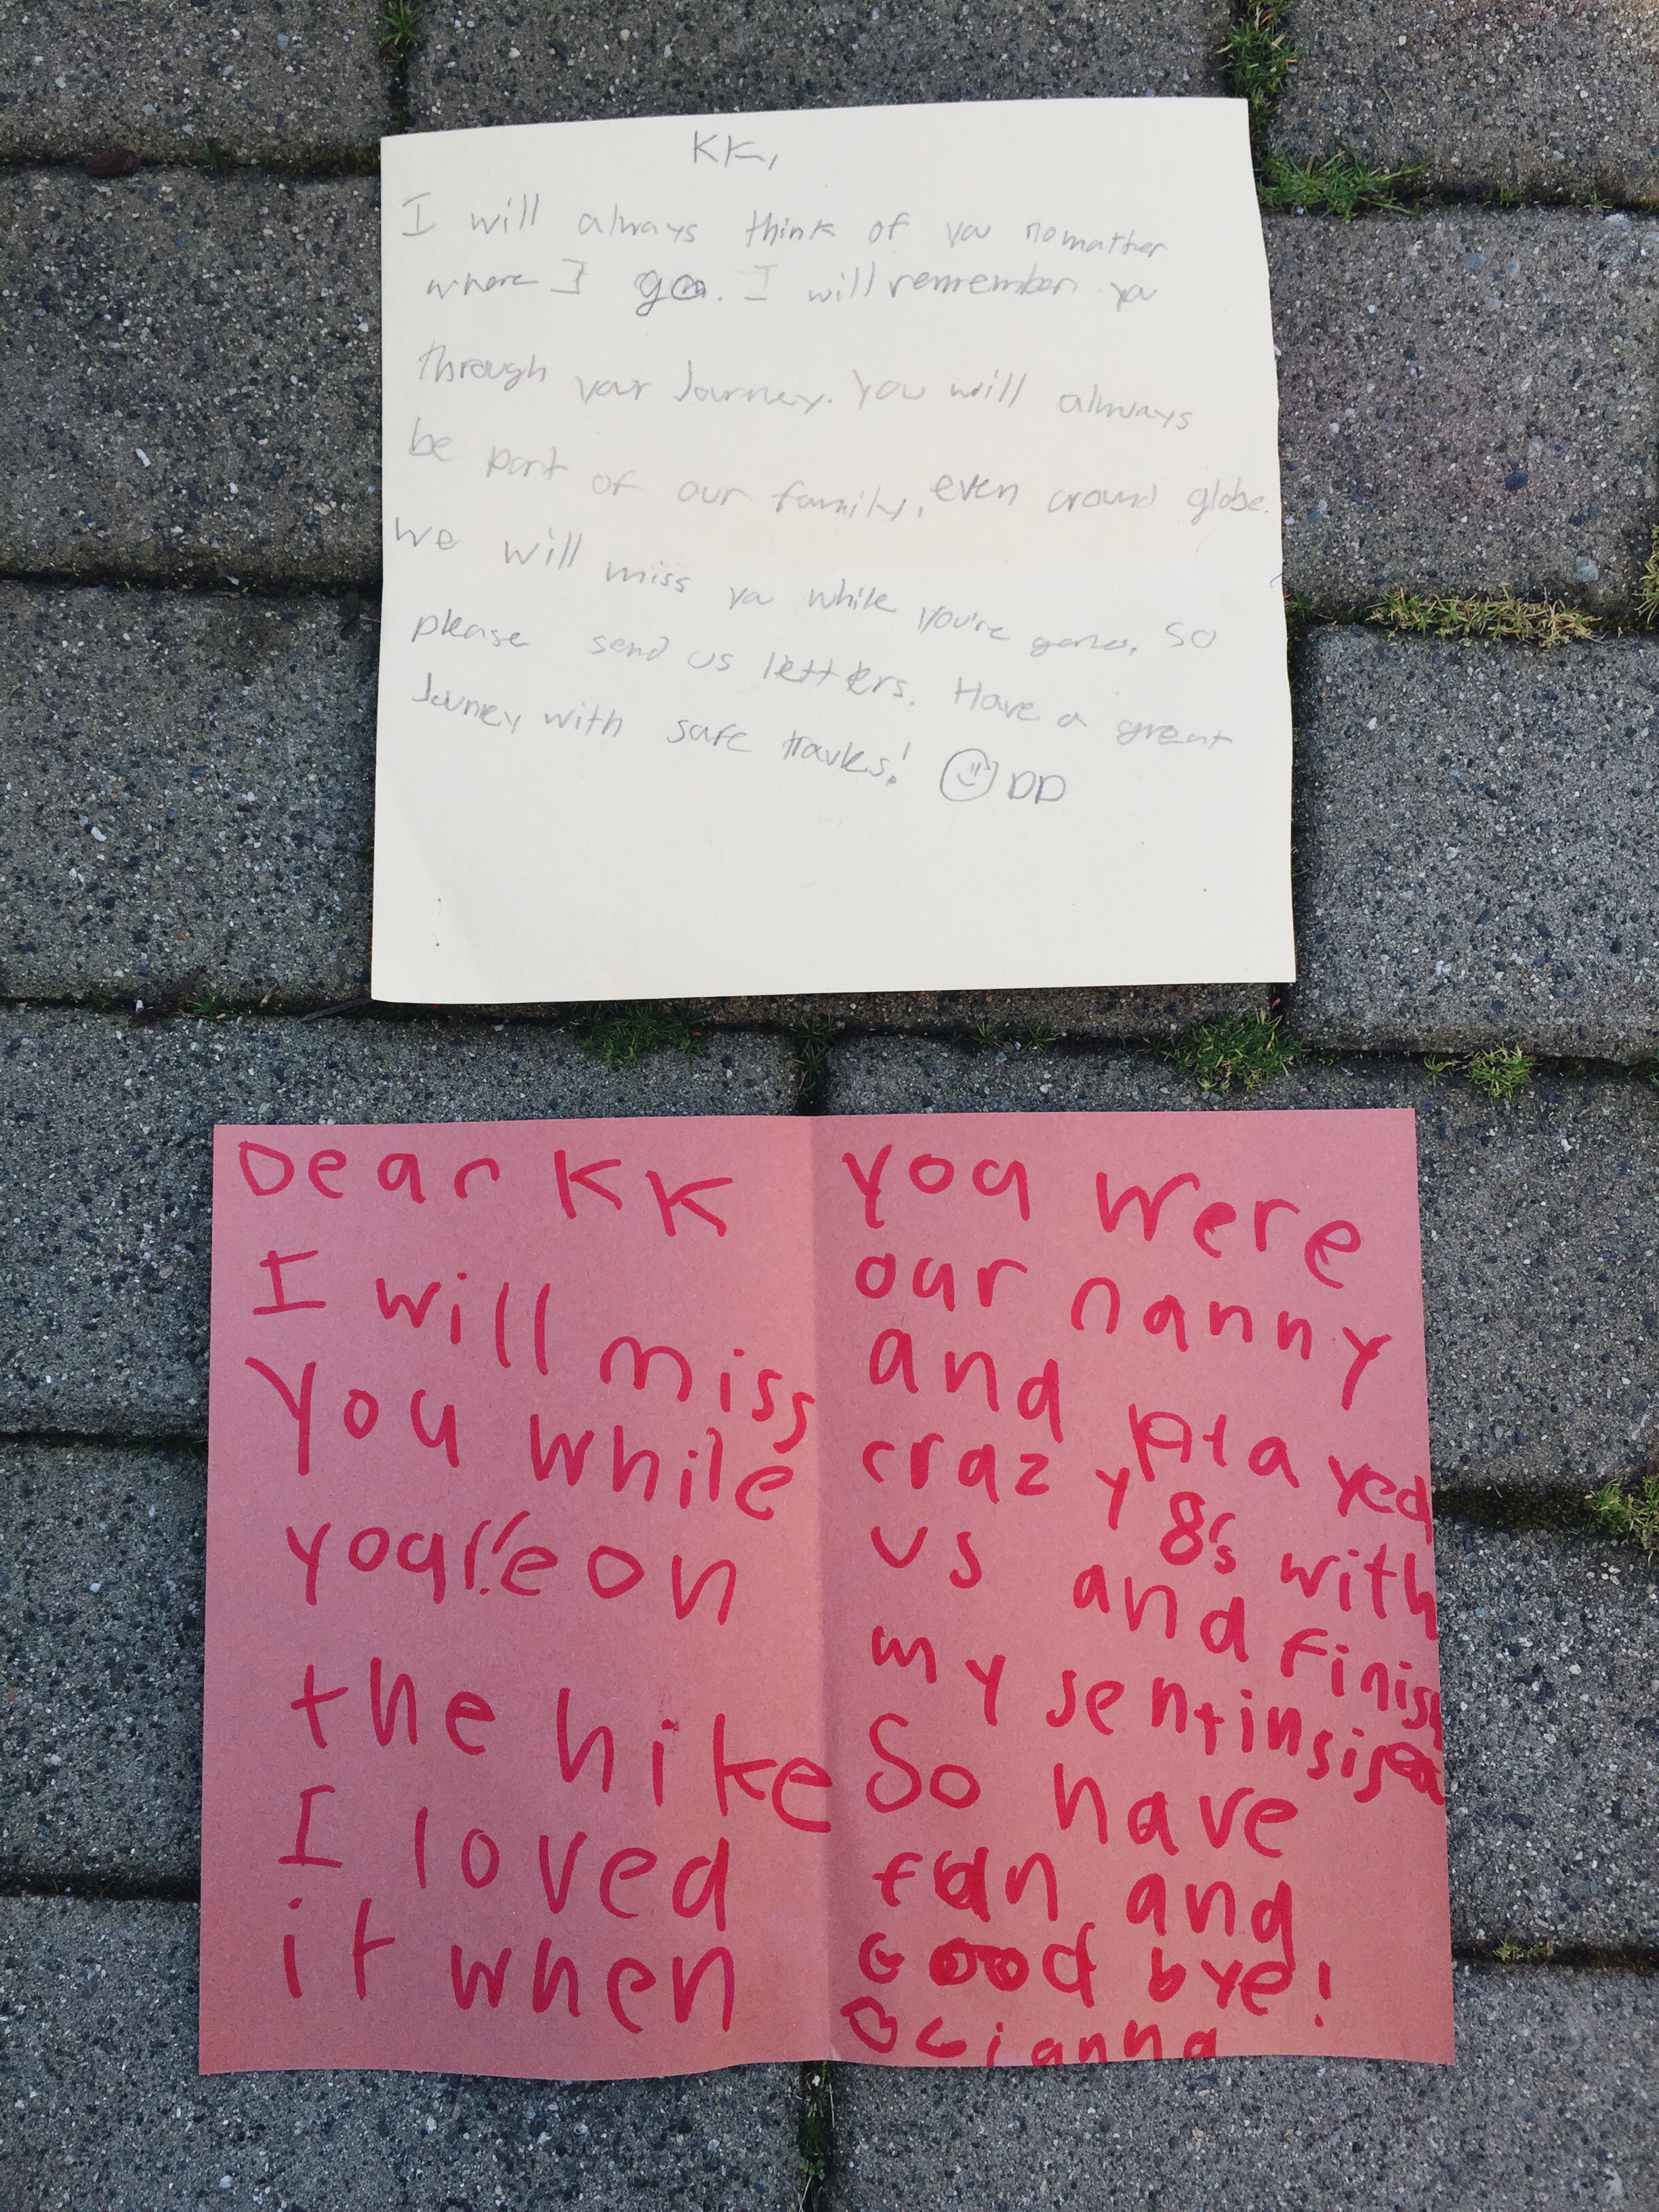 KK,
I will always think of you no matter
where I go. I will remember you
through your Journey. You will always
be part of our family, even around globe.
We will miss you while you're gone. SO
please send us letters. Have a great
Journey with safe travles! DD
Dear KK
I will miss
You while
you're on
the hike
I loved
it when
you were
our nanny
and played
crazy 8's with
us and finish
my sentinsised
So have
fun and
Good bye!
Gianna